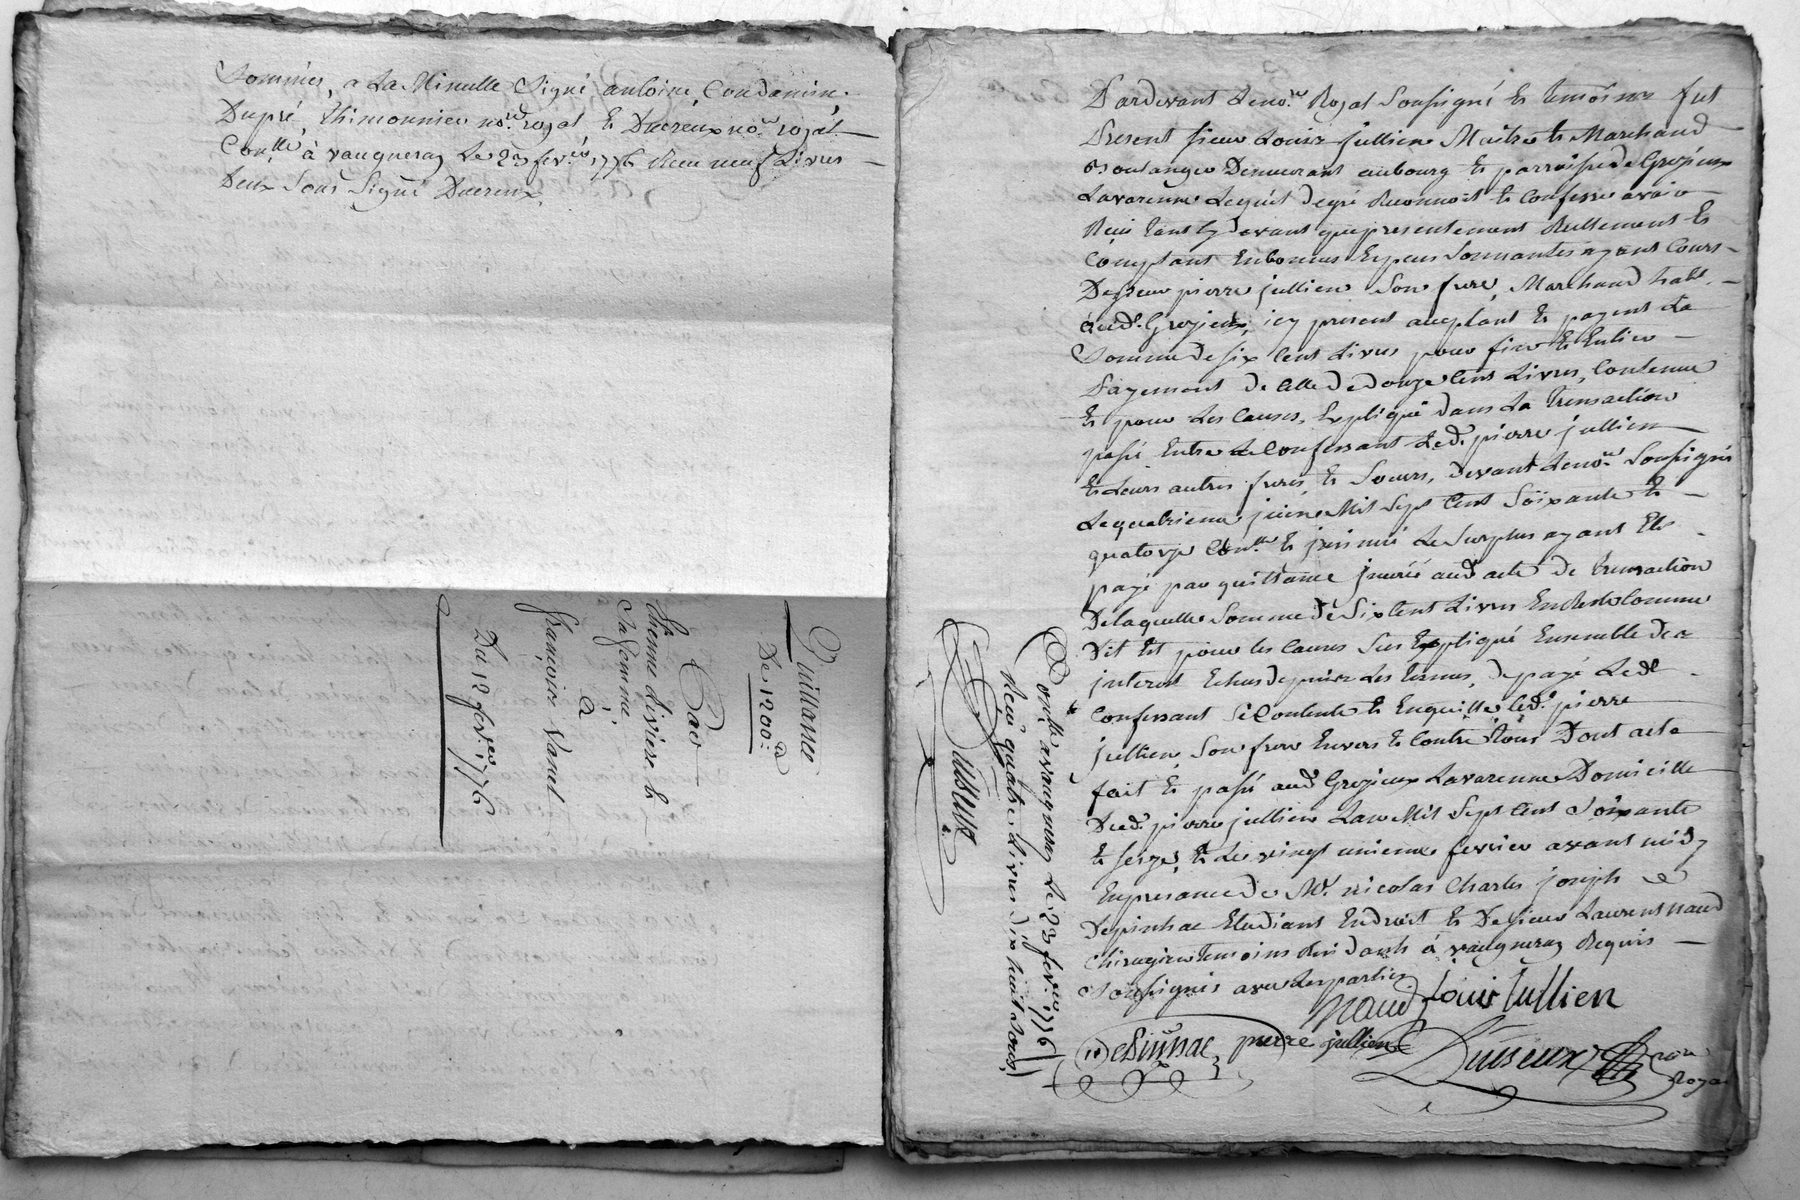 Sommées, a La Minutte Signé antoine, Condamin,
Dupré, Thimonnier no.re royal, & Ducreux no.re royal
Con.llé à vaugneray Le 23 fev.er 1776 Reçu neuf Livres
Deux Sous Signé Ducreux
Quittance
De 1200.ll
Par
Etienne Livriere &
Sa femme
à
françoise Vanel
Du 12 fev.er 1776
Pardevant Le no.re Royal Soussigné & temoins fut
Present sieur Louis jullien Maitre & Marchand
Boulanger Demeurant au bourg & parroisse de Grezieux
Lavarenne Lequel de gré Reconnoit & Confesse avoir
Reçu tant Cy devant que presentement Reellement &
Comptant En bonnes Especes Sonnantes ayant Cours
De sieur pierre jullien Son frere, Marchand hab.t
aud. Grezieux, icy present acceptant & payant La
Somme de six Cent Livres pour fin & Entier
Payement de Celle de douze Cent Livres, Contenue
& pour Les Causes, Expliqué dans La Transaction
passé Entre Le Confessant Led. pierre jullien
& Leurs autres freres, & Soeurs, devant Le no.re Soussigné
Le quatrieme juin Mil Sept Cent Soixante &
quatorze Con.llé & insinué Le Surplus ayant Eté
payé par quittance inserée aud acte De transaction
De laquelle Somme De Six Cent Livres En Reste Comme
Dit Est pour les Causes Sus Expliqué Ensemble des
interest Echus depuis Les termes, de payé Led.
Confessant Se Contente & En quitte Led. pierre
jullien, Son frere Envers & Contre Tous Dont acte
fait & passé aud Grezieux Lavarenne Domicille
Dud. pierre jullien L'an Mil Sept Cent Soixante
& seize, & Le vingt unieme fevrier avant midy
En presance de M.r nicolas Charles joseph
Depinhac Etudiant En droit & De sieur Laurent naud
Chirugien temoins Residants à vaugneray Requis
Soussignés avec Les parties
naud Louis Jullien
Depinhac pierre jullien Dusseux no.re Royal
Con.llé a vaugneray Le 23 fev.er 1776
Reçu quatre Livres dix huit Sous,
Dusseux